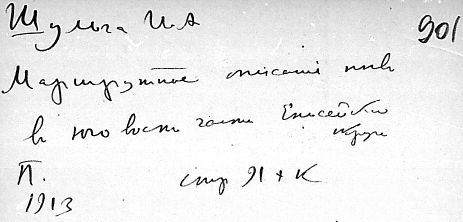 Шульга И.А 901
Маршрутное описание почв
в юго вост части Енисейского
округа
П.
1913 стр 91 + К